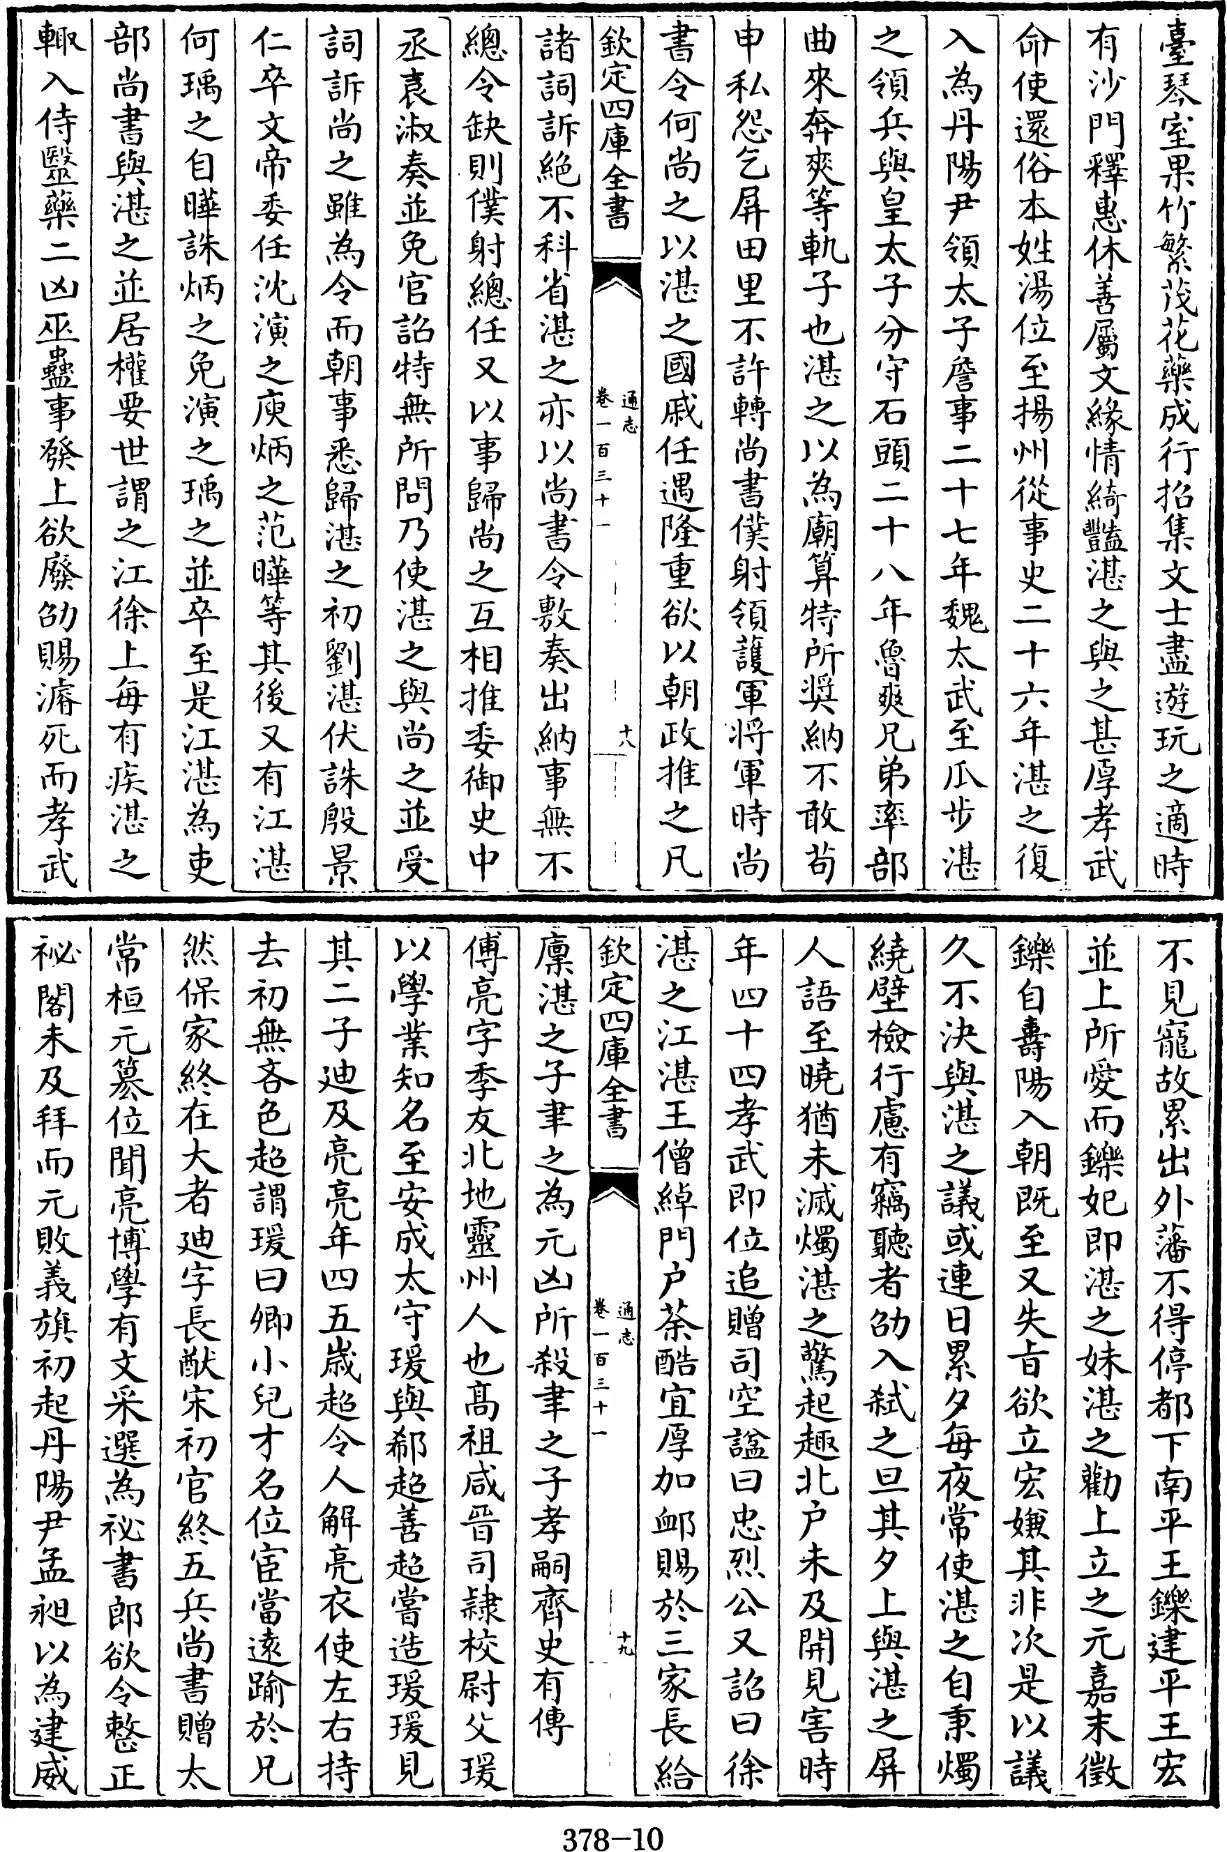 臺琴室果竹繁茂花藥成行招集文士盡遊玩之適時
有沙門釋惠休善屬文緣情綺豔湛之與之甚厚孝武
命使還俗本姓湯位至揚州從事史二十六年湛之復
入為丹陽尹領太子詹事二十七年魏太武至瓜步湛
之領兵與皇太子分守石頭二十八年魯爽兄弟率部
曲來奔爽等軌子也湛之以為廟算特所奨納不敢茍
申私怨乞屏田里不許轉尚書僕射領護軍將軍時尚
書令何尚之以湛之國戚任遇隆重欲以朝政推之凡
欽定四庫全書
通志
卷一百三十一
十八
諸詞訴絶不科省湛之亦以尚書令敷奏出納事無不
總令缺則僕射總任又以事歸尚之互相推委御史中
丞袁淑奏並免官詔特無所問乃使湛之與尚之並受
詞訴尚之雖為令而朝事悉歸湛之初劉湛伏誅殷景
仁卒文帝委任沈演之庾炳之范曄等其後又有江湛
何瑀之自曄誅炳之免演之瑀之並卒至是江湛為吏
部尚書與湛之並居權要世謂之江徐上每有疾湛之
輙入侍醫藥二凶巫蠱事發上欲廢劭賜濬死而孝武
不見寵故累出外藩不得停都下南平王鑠建平王宏
並上所愛而鑠妃即湛之妹湛之勸上立之元嘉末徵
鑠自壽陽入朝既至又失㫖欲立宏嫌其非次是以議
久不決與湛之議或連日累夕每夜常使湛之自秉燭
繞壁檢行慮有竊聽者劭入弑之旦其夕上與湛之屏
人語至曉猶未滅燭湛之驚起趣北戸未及開見害時
年四十四孝武即位追贈司空諡曰忠烈公又詔曰徐
湛之江湛王僧綽門戸荼酷宜厚加䘏賜於三家長給
欽定四庫全書
通志
卷一百三十一
十九
廩湛之子聿之為元凶所殺聿之子孝嗣齊史有傳
傅亮字季友北地靈州人也髙祖咸晉司隷校尉父瑗
以學業知名至安成太守瑗與郗超善超嘗造瑗瑗見
其二子迪及亮亮年四五歲超令人解亮衣使左右持
去初無吝色超謂瑗曰卿小兒才名位宦當逺踰於兄
然保家終在大者迪字長猷宋初官終五兵尚書贈太
常桓元簒位聞亮博學有文采選為祕書郎欲令整正
祕閣未及拜而元敗義旗初起丹陽尹孟昶以為建威
378-10